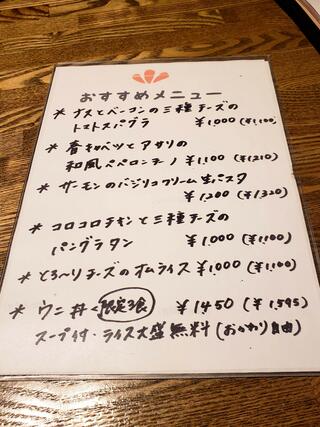 おすすめメニュー
* ナスとベーコンの三種チーズの
トマトスパグラ ¥1,000 (¥1,100)
* 春キャベツとアサリの
和風ペペロンチーノ ¥1,100 (¥1,210)
* サーモンのバジリコクリーム生パスタ
¥1,200 (¥1,320)
* コロコロチキンと三種チーズの
パングラタン ¥1,000 (¥1,100)
* とろ〜りチーズのオムライス ¥1,000 (¥1,100)
* ウニ丼 < 限定3食 ¥1450 (¥1,595)
スープ付・ライス大盛無料 (おかわり自由)